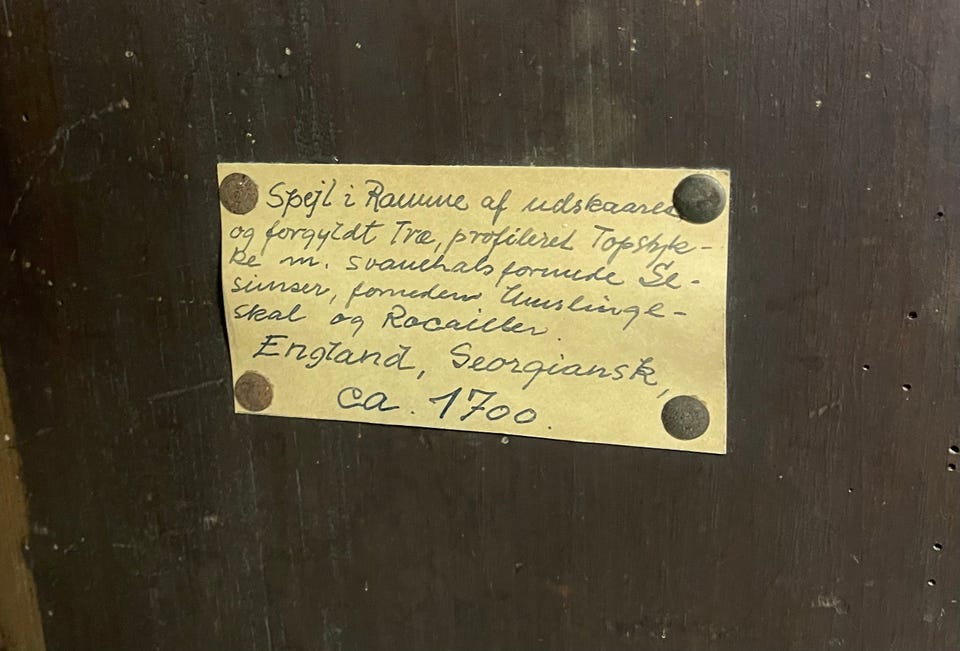 Spejl i Ramme af udskaaret
og forgyldt Træ, profileret Topstyk-
ke m. svanehalsformede Ge-
simser, forneden Muslinge-
skal og Rocailler.
England, Georgiansk,
ca. 1700.